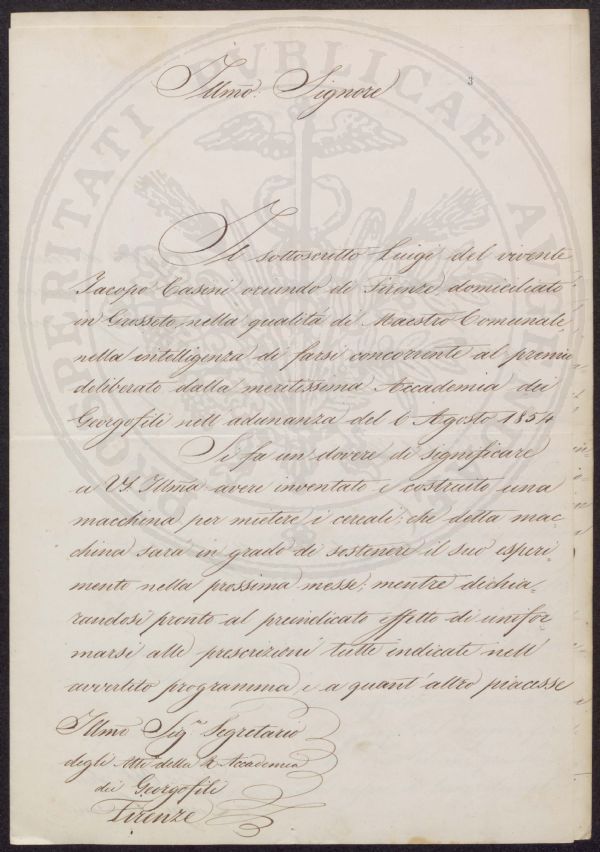 3
Illmo: Signore
Il sottoscritto Luigi del vivente
Jacopo Caseni oriundo di Firenze, domiciliato
in Grosseto, nella qualità di Maestro Comunale,
nella intelligenza di farsi concorrente al premio
deliberato dalla meritissima Accademia dei
Georgofili nell' adunanza del 6 Agosto 1854
Si fa un dovere di significare
a VS. Illma avere inventato e costruito una
macchina per mietere i cereali; che detta mac-
china sarà in grado di sostenere il suo esperi-
mento nella prossima messe; mentre dichia-
randosi pronto al preindicato effetto di unifor
marsi alle prescrizioni tutte indicate nell'
avvertito programma, e a quant' altro piacesse
Illmo Sigr. Segretario
degli Atti della R. Accademia
dei Georgofili
Firenze
PROSPERITATI PUBLICAE AUGENDAE